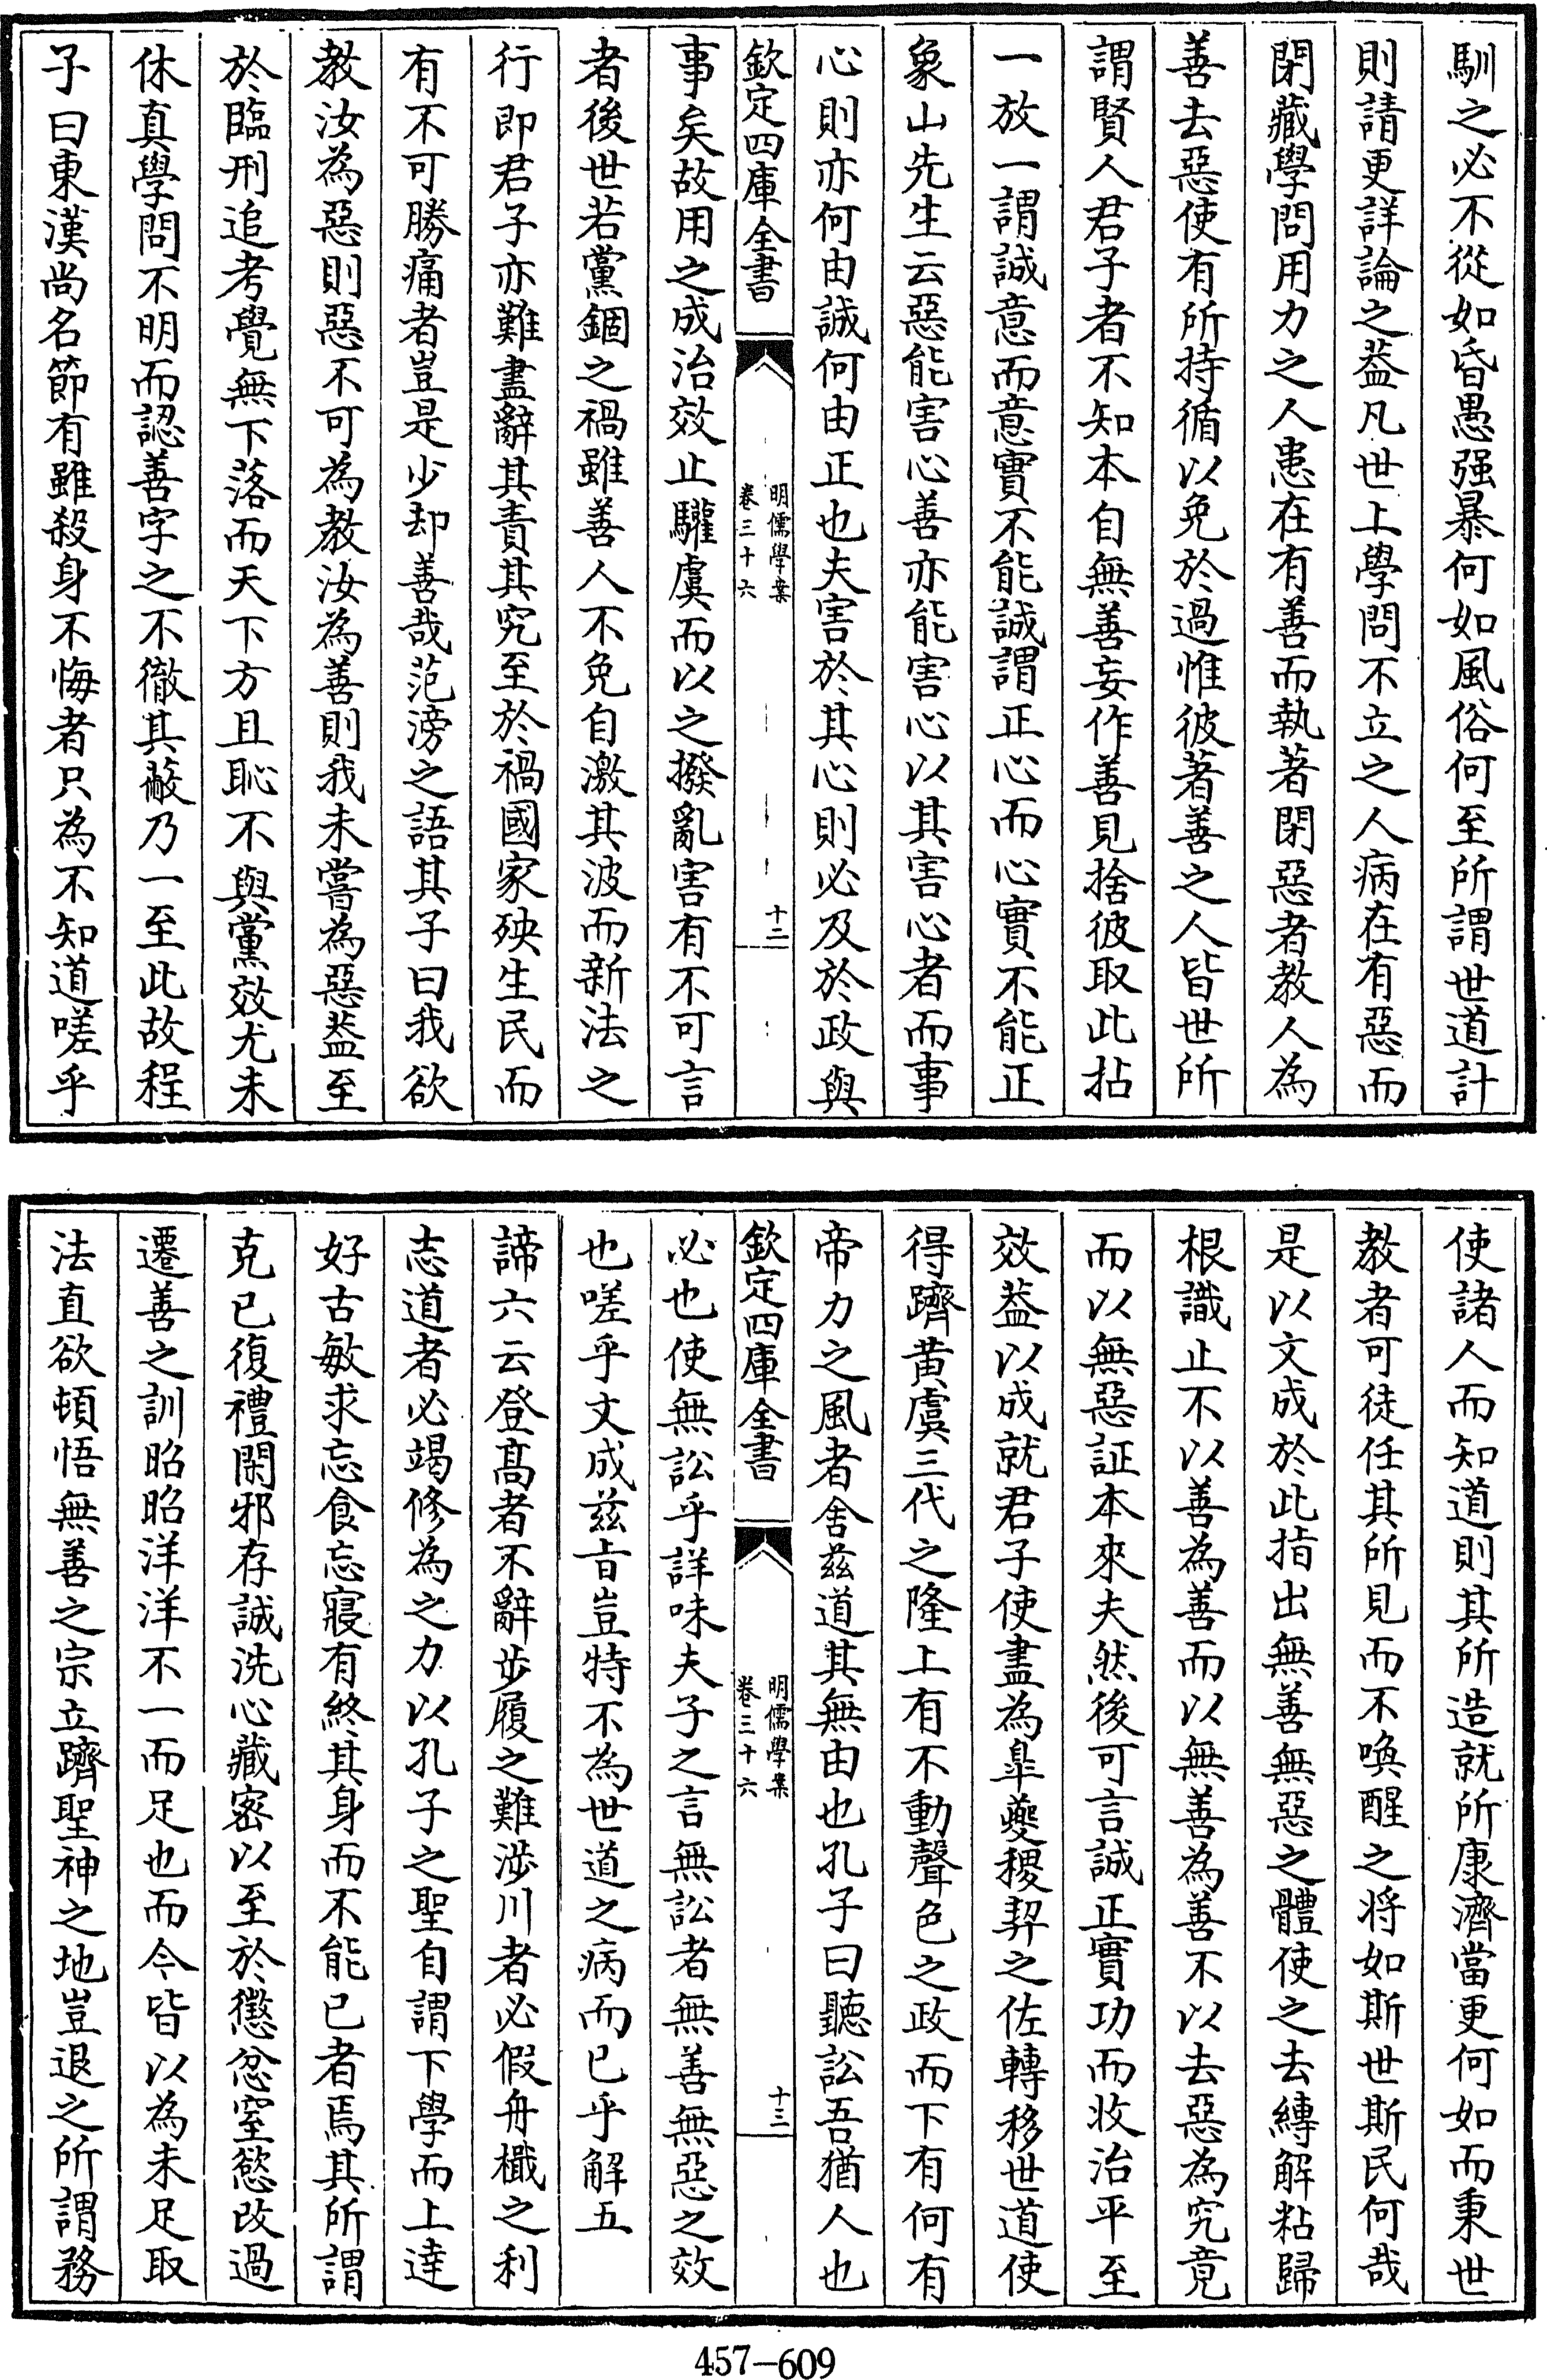 馴之必不從如昏愚强暴何如風俗何至所謂世道計
則請更詳論之葢凡世上學問不立之人病在有惡而
閉藏學問用力之人患在有善而執著閉惡者教人為
善去惡使有所持循以免於過惟彼著善之人皆世所
謂賢人君子者不知本自無善妄作善見捨彼取此拈
一放一謂誠意而意實不能誠謂正心而心實不能正
象山先生云惡能害心善亦能害心以其害心者而事
心則亦何由誠何由正也夫害於其心則必及於政與
欽定四庫全書
明儒學案
卷三十六
十二
事矣故用之成治效止驩虞而以之撥亂害有不可言
者後世若黨錮之禍雖善人不免自激其波而新法之
行即君子亦難盡辭其責其究至於禍國家殃生民而
有不可勝痛者豈是少却善哉范滂之語其子曰我欲
教汝為惡則惡不可為教汝為善則我未嘗為惡葢至
於臨刑追考覺無下落而天下方且恥不與黨效尤未
休真學問不明而認善字之不徹其蔽乃一至此故程
子曰東漢尚名節有雖殺身不悔者只為不知道嗟乎
使諸人而知道則其所造就所康濟當更何如而秉世
教者可徒任其所見而不喚醒之将如斯世斯民何哉
是以文成於此指出無善無惡之體使之去縛解粘歸
根識止不以善為善而以無善為善不以去惡為究竟
而以無惡証本來夫然後可言誠正實功而收治平至
效葢以成就君子使盡為臯夔稷契之佐轉移世道使
得躋黄虞三代之隆上有不動聲色之政而下有何有
帝力之風者舍兹道其無由也孔子曰聽訟吾猶人也
欽定四庫全書
明儒學案
卷三十六
十三
必也使無訟乎詳味夫子之言無訟者無善無惡之效
也嗟乎文成兹旨豈特不為世道之病而已乎解五
諦六云登髙者不辭步履之難涉川者必假舟檝之利
志道者必竭修為之力以孔子之聖自謂下學而上達
好古敏求忘食忘寢有終其身而不能已者焉其所謂
克已復禮閑邪存誠洗心藏密以至於懲忿窒慾改過
遷善之訓昭昭洋洋不一而足也而今皆以為未足取
法直欲頓悟無善之宗立躋聖神之地豈退之所謂務
457-609